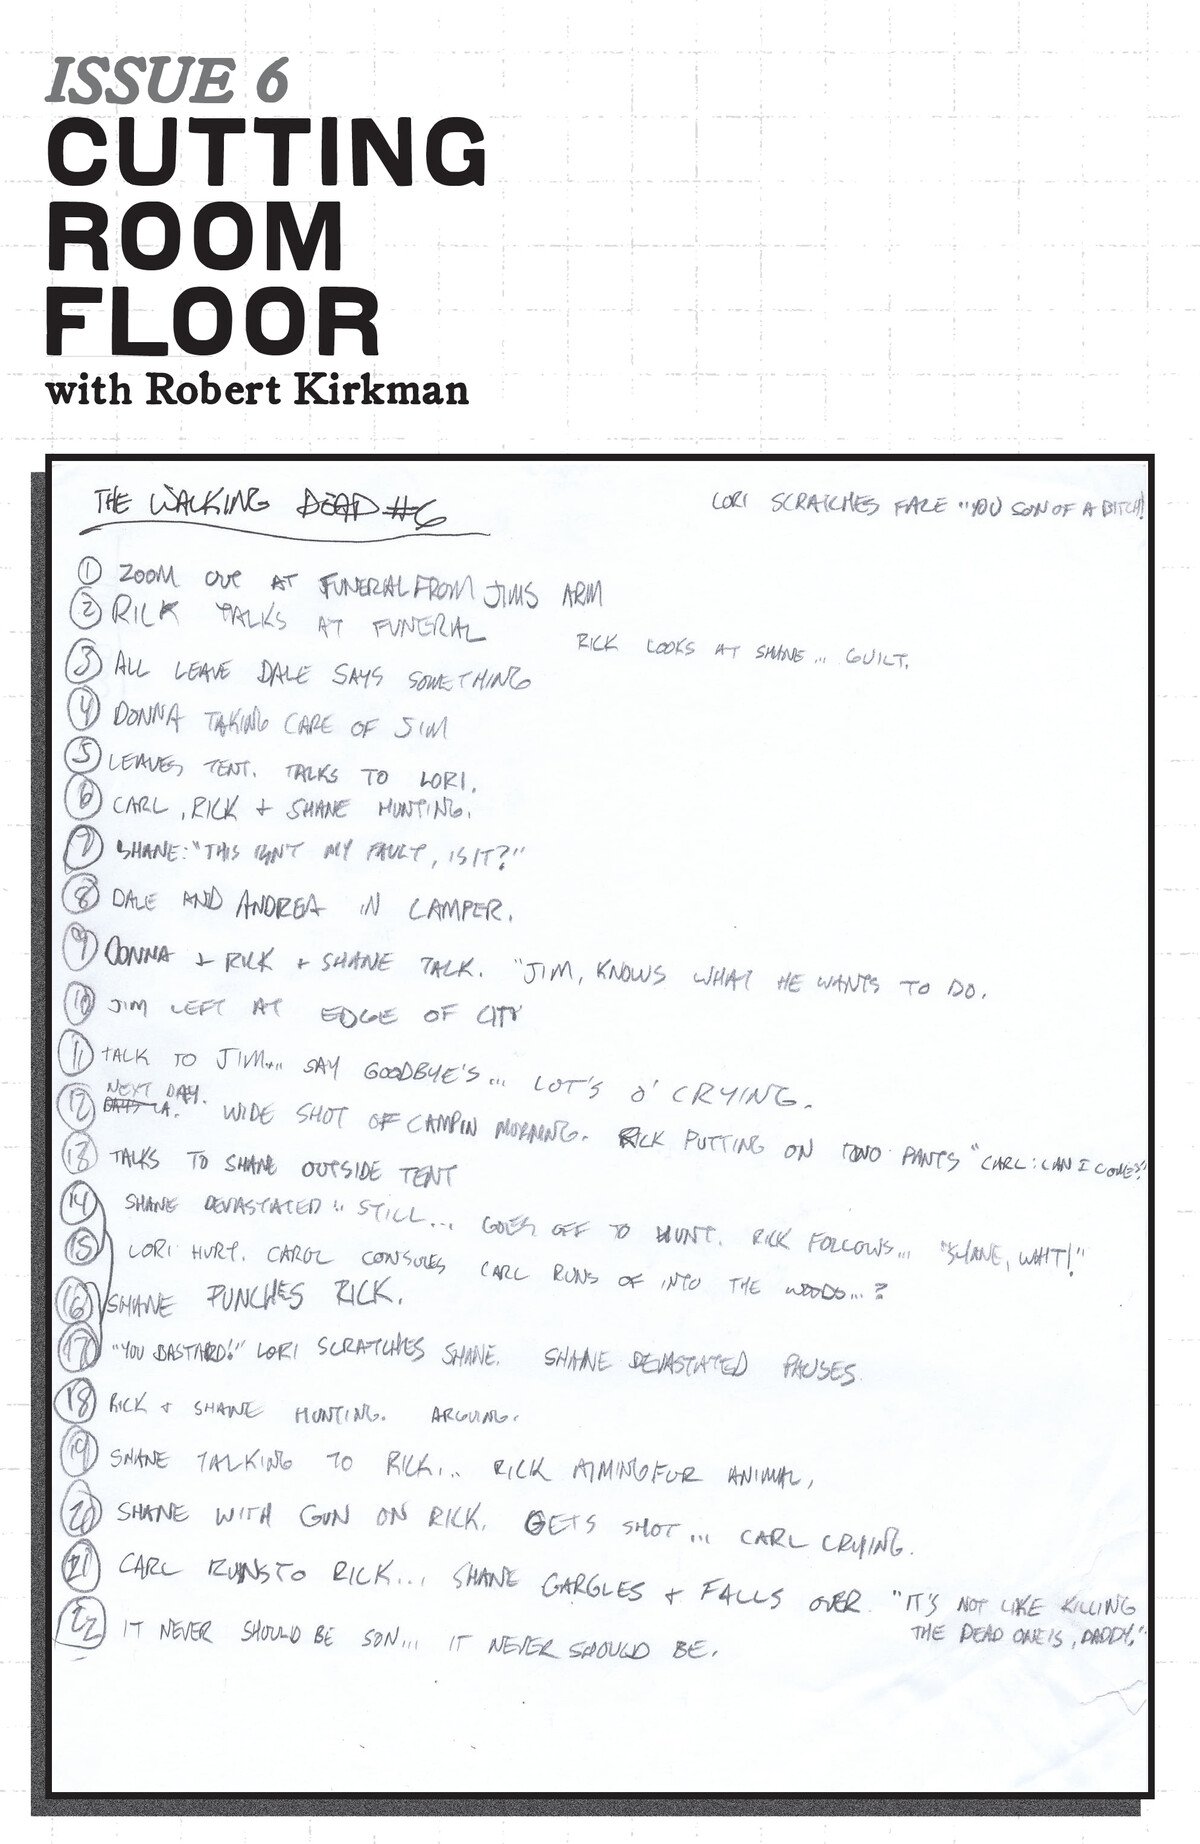 ISSUE 6
CUTTING
ROOM
FLOOR
with Robert Kirkman
THE WALKING DEAD #6
LORI SCRATCHES FACE "YOU SON OF A BITCH!
① ZOOM OUT AT FUNERAL FROM JIMS ARM
② RICK TALKS AT FUNERAL
RICK LOOKS AT SHANE... GUILT.
③ ALL LEAVE DALE SAYS SOMETHING
④ DONNA TAKING CARE OF JIM
⑤ LEAVES TENT. TALKS TO LORI.
⑥ CARL, RICK + SHANE HUNTING.
⑦ SHANE: "THIS ISN'T MY FAULT, IS IT?"
⑧ DALE AND ANDREA IN CAMPER.
⑨ DONNA + RICK + SHANE TALK. "JIM, KNOWS WHAT HE WANTS TO DO.
⑩ JIM LEFT AT EDGE OF CITY
⑪ TALK TO JIM... SAY GOODBYE'S... LOT'S O' CRYING.
NEXT DAY.
⑫ WIDE SHOT OF CAMP IN MORNING. RICK PUTTING ON PANTS "CARL: CAN I COME?"
⑬ TALKS TO SHANE OUTSIDE TENT
⑭ SHANE DEVASTATED STILL... GOES OFF TO HUNT. RICK FOLLOWS... "SHANE, WAIT!"
⑮ LORI HURT. CAROL CONSOLES CARL RUNS OF INTO THE WOODS...?
⑯ SHANE PUNCHES RICK.
⑰ "YOU BASTARD!" LORI SCRATCHES SHANE. SHANE DEVASTATED PAUSES.
⑱ RICK + SHANE HUNTING. ARGUING.
⑲ SHANE TALKING TO RICK... RICK AIMING FOR ANIMAL,
⑳ SHANE WITH GUN ON RICK. GETS SHOT... CARL CRYING.
㉑ CARL RUNS TO RICK... SHANE GARGLES + FALLS OVER. "IT'S NOT LIKE KILLING
THE DEAD ONE IS, DADDY."
㉒ IT NEVER SHOULD BE SON... IT NEVER SHOULD BE.